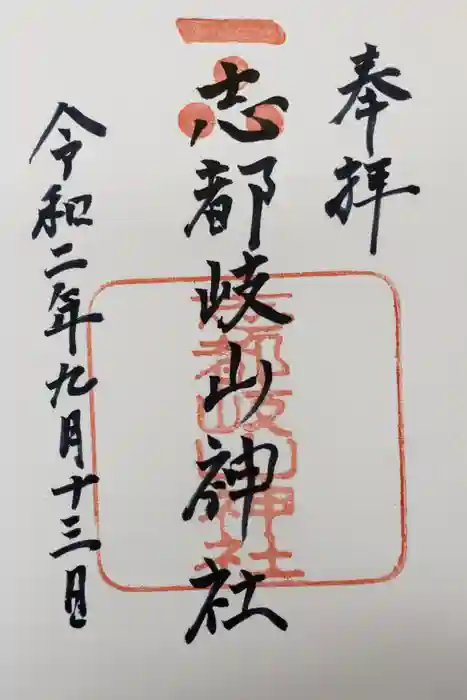 奉拝
志都岐山神社
令和二年九月十三日
志都岐山神社